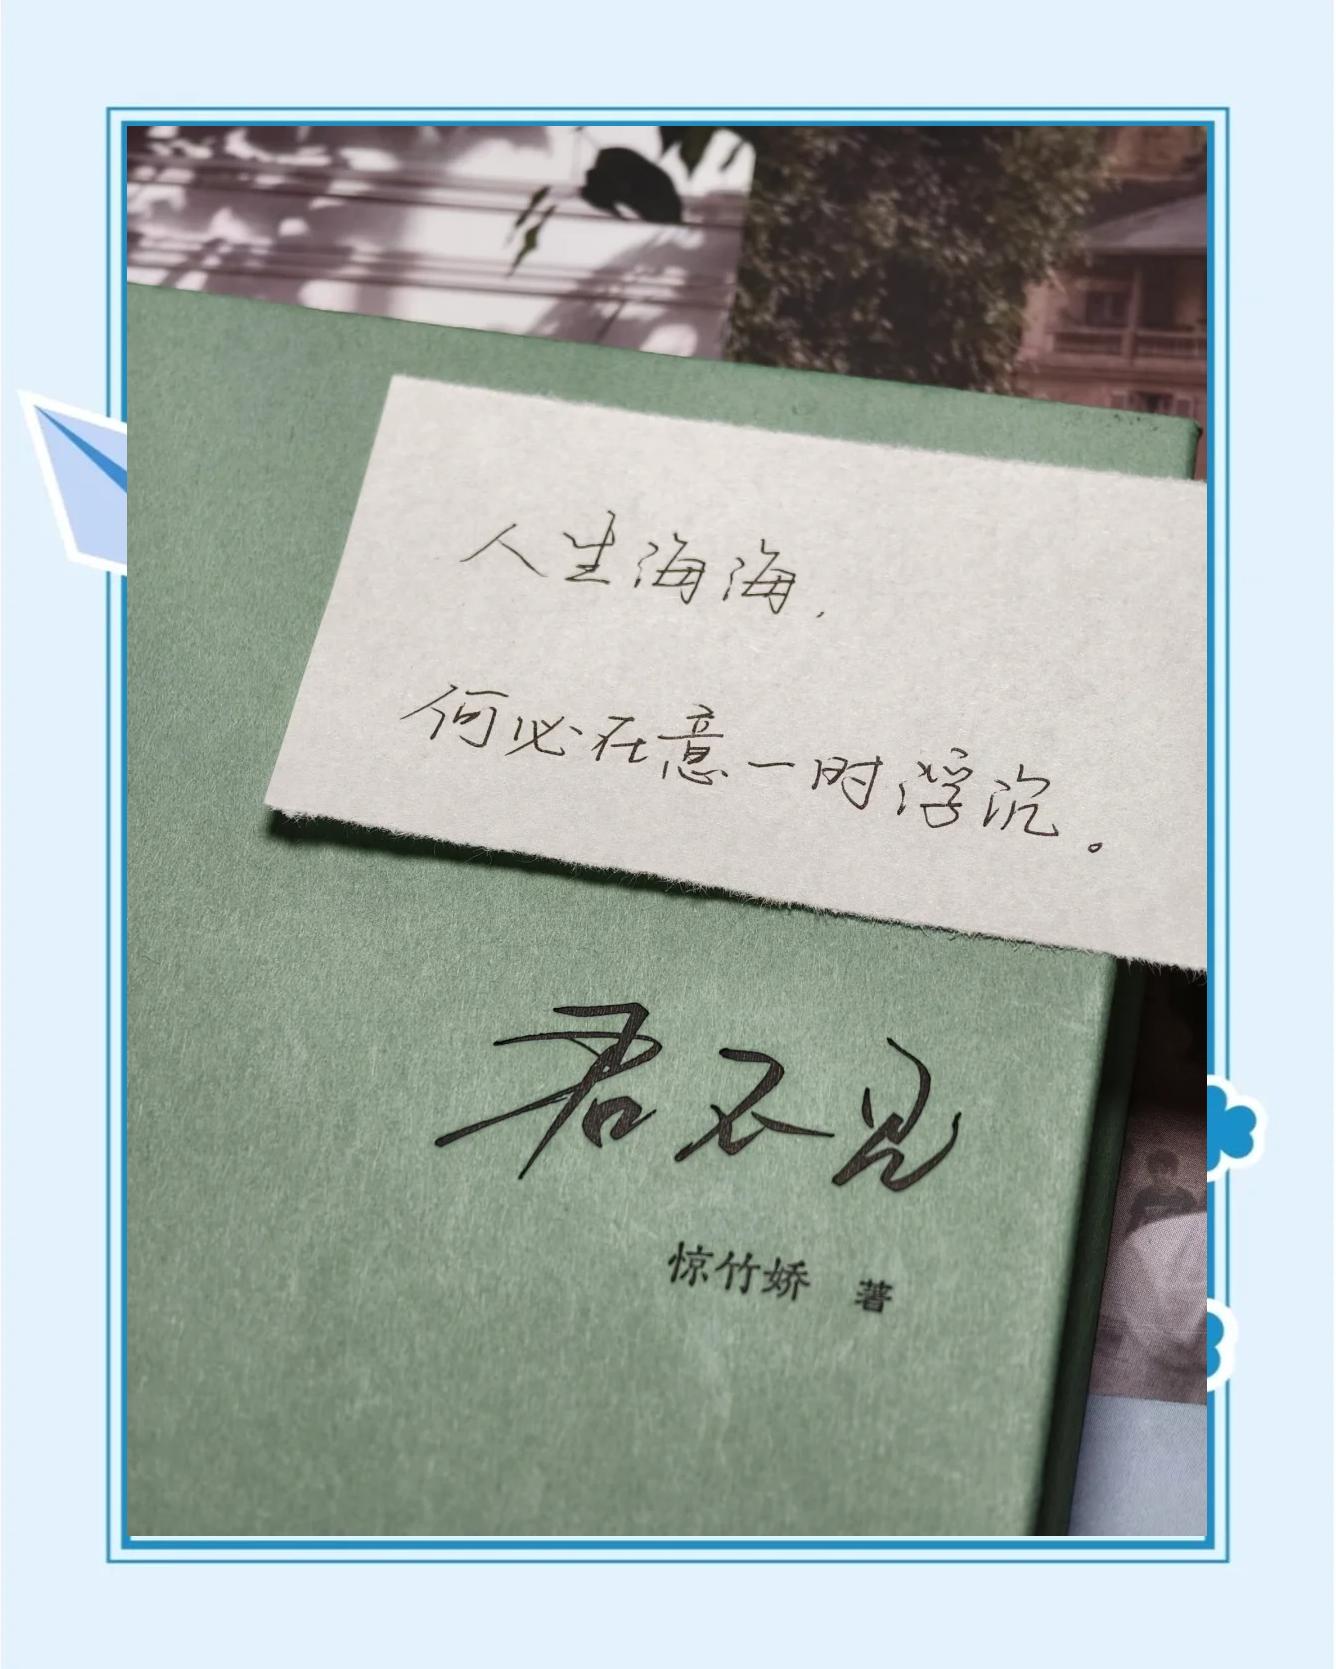 人生海海，
何必在意一时浮沉。
君不见
惊竹娇 著